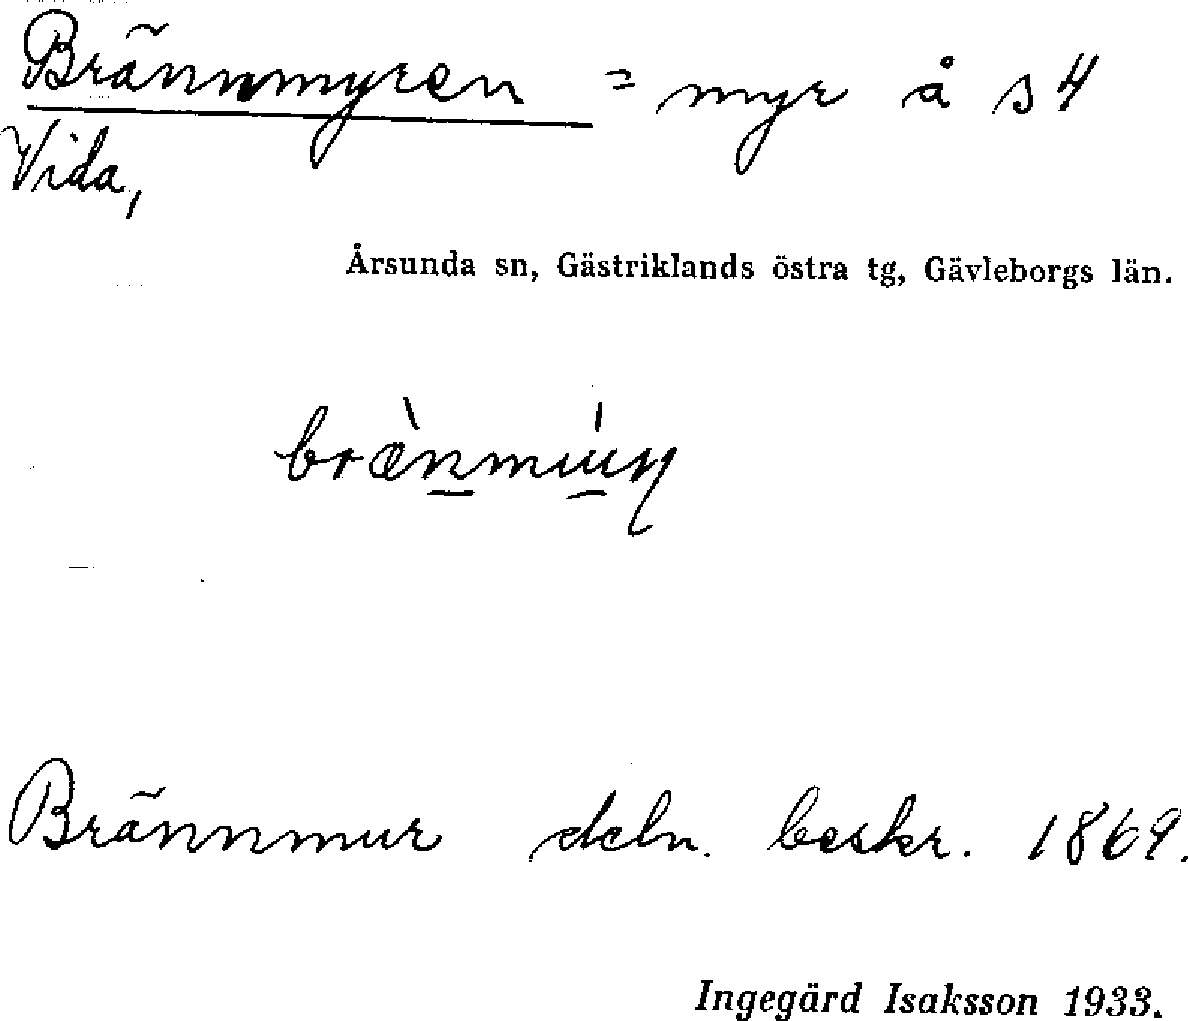 Brännmyren = myr å s 4
Vida,
Årsunda sn, Gästriklands östra tg, Gävleborgs län.
Brännmur deln. beskr. 1869.
Ingegärd Isaksson 1933.